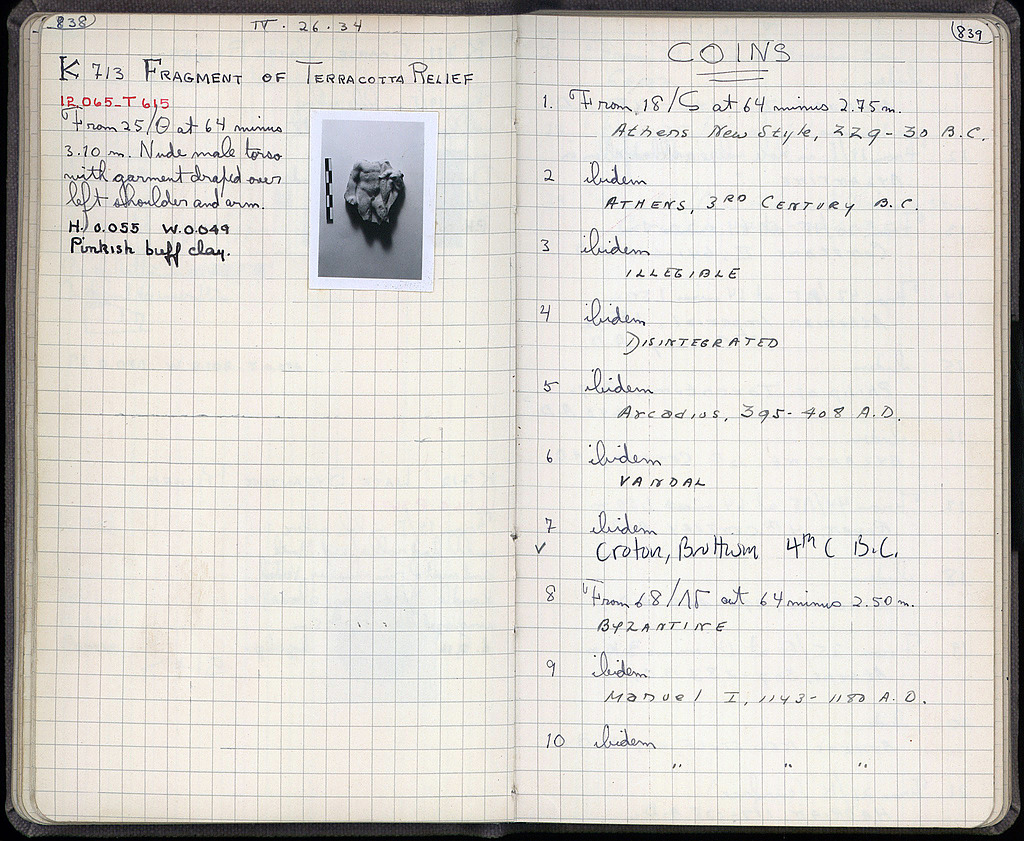 838
IV. 26.34
K 713 FRAGMENT OF TERRACOTTA RELIEF
12.065-T 615
From 25/Θ at 64 minus
3.10 m. Nude male torso
with garment draped over
left shoulder and arm.
H. 0.055 W. 0.049
Pinkish buff clay.
839
COINS
1. From 18/ at 64 minus 2.75 m.
Athens New Style, 229-30 B.C.
2 ibidem
ATHENS, 3RD CENTURY B.C.
3 ibidem
ILLEGIBLE
4 ibidem
DISINTEGRATED
5 ibidem
Arcadius, 395-408 A.D.
6 ibidem
VANDAL
7 ibidem
✓ Croton, Bruttium 4th C B.C.
8 From 68/ at 64 minus 2.50 m.
BYZANTINE
9 ibidem
Manuel I, 1143-1180 A.D.
10 ibidem
" " "